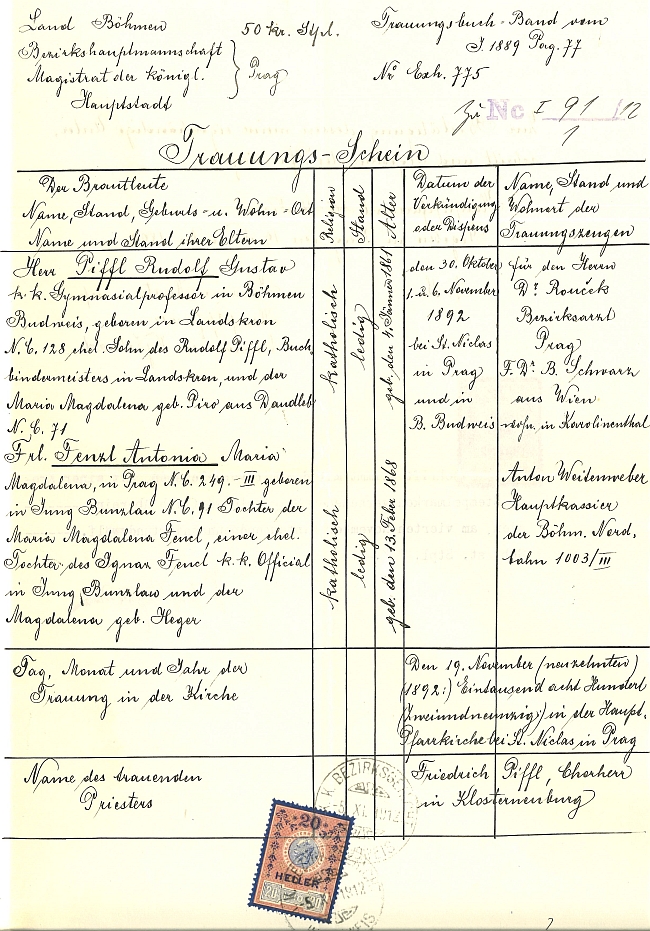 Land Böhmen
Bezirkshauptmannschaft
Magistrat der königl.
Hauptstadt
Prag
50 kr. Stpl.
Trauungsbuch-Band vom
J. 1889 Pag. 77
Nro Exh. 775
zu Nc I 91/1 /12
Trauungs-Schein
Der Brautleute
Name, Stand, Geburts- u. Wohn-Ort
Name und Stand ihrer Eltern
Religion
Stand
Alter
Datum der
Verkündigung
oder Dispens
Name, Stand und
Wohnort der
Trauungszeugen
Herr Piffl Rudolf Gustav
k.k. Gymnasialprofessor in Böhmen
Budweis, geboren in Landskron
N.C. 128, ehel. Sohn des Rudolf Piffl, Buch-
bindermeisters in Landskron, und der
Maria Magdalena geb. Piro aus Daudleb
N.C. 71
katholisch
ledig
geb. den 4. Jänner 1861
den 30. Oktober
1. u. 6. November
1892
bei St. Niclas
in Prag
und in
B. Budweis
für den Herrn
Dr. Rouček
Bezirksarzt
Prag
F. Dr. B. Schwarz
aus Wien
wohn. in Karolinenthal
Frl. Fenzl Antonia Maria
Magdalena, in Prag N.C. 249.-III geboren
in Jung Bunzlau N.C. 91 Tochter der
Maria Magdalena Fencl, einer ehel.
Tochter des Ignaz Fencl k.k. Official
in Jung Bunzlau und der
Magdalena geb. Heger
katholisch
ledig
geb. den 13. Febr 1868
Anton Weitenweber
Hauptkassier
der Böhm. Nord-
bahn 1003/III
Tag, Monat und Jahr der
Trauung in der Kirche
Den 19. November (neunzehnten)
(1892:) Eintausend acht Hundert
(Zweiundneunzig:) in der Haupt-
Pfarrkirche bei St. Niclas in Prag
Name des trauenden
Priesters
Friedrich Piffl, Chorherr
in Klosterneuburg
20
HELLER